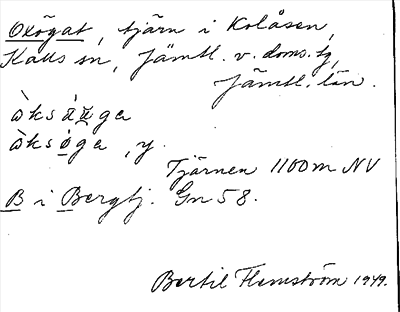 Oxögat, tjärn i Kolåsen,
Kalls sn, Jämtl. v. doms. tg,
Jämtl. län.
àksá̤ṳga
àksó̤ga, y.
Tjärnen 1100 m NV
B i Bergtj. Gn 58.
Bertil Flemström 1949.